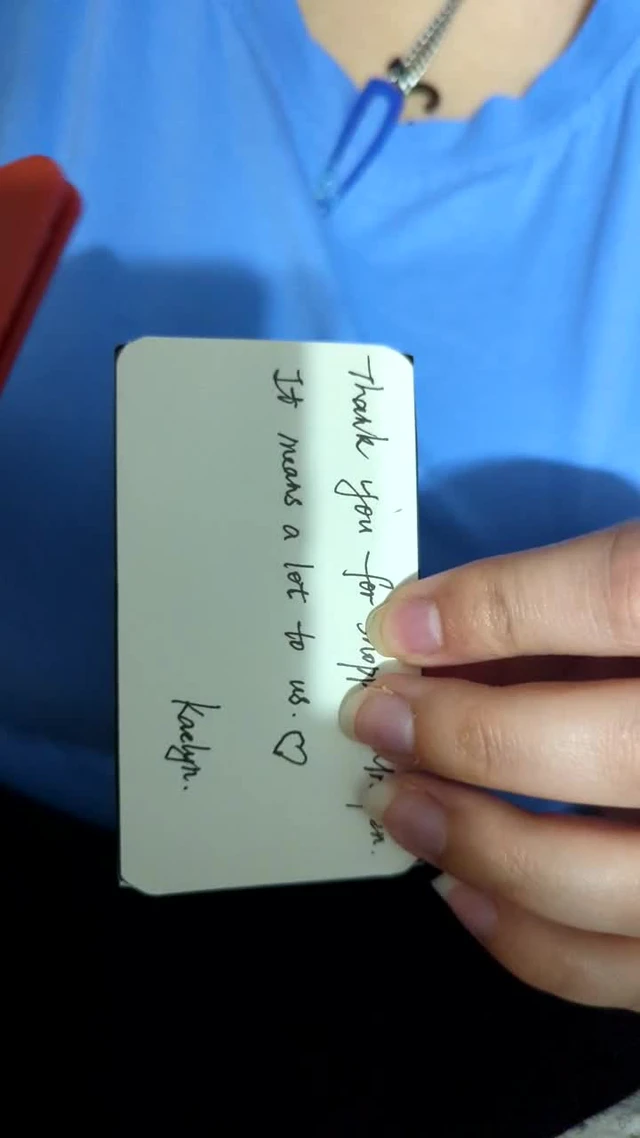 Thank you for Mr.
It means a lot to us. ♡
Kaelyn.